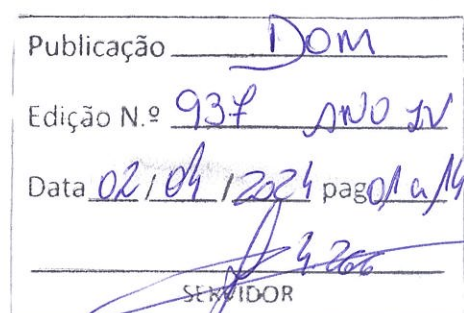 Publicação DOM
Edição N.º 937 ANO IV
Data 02/04/2024 pag 01 a 14
4.266
SERVIDOR